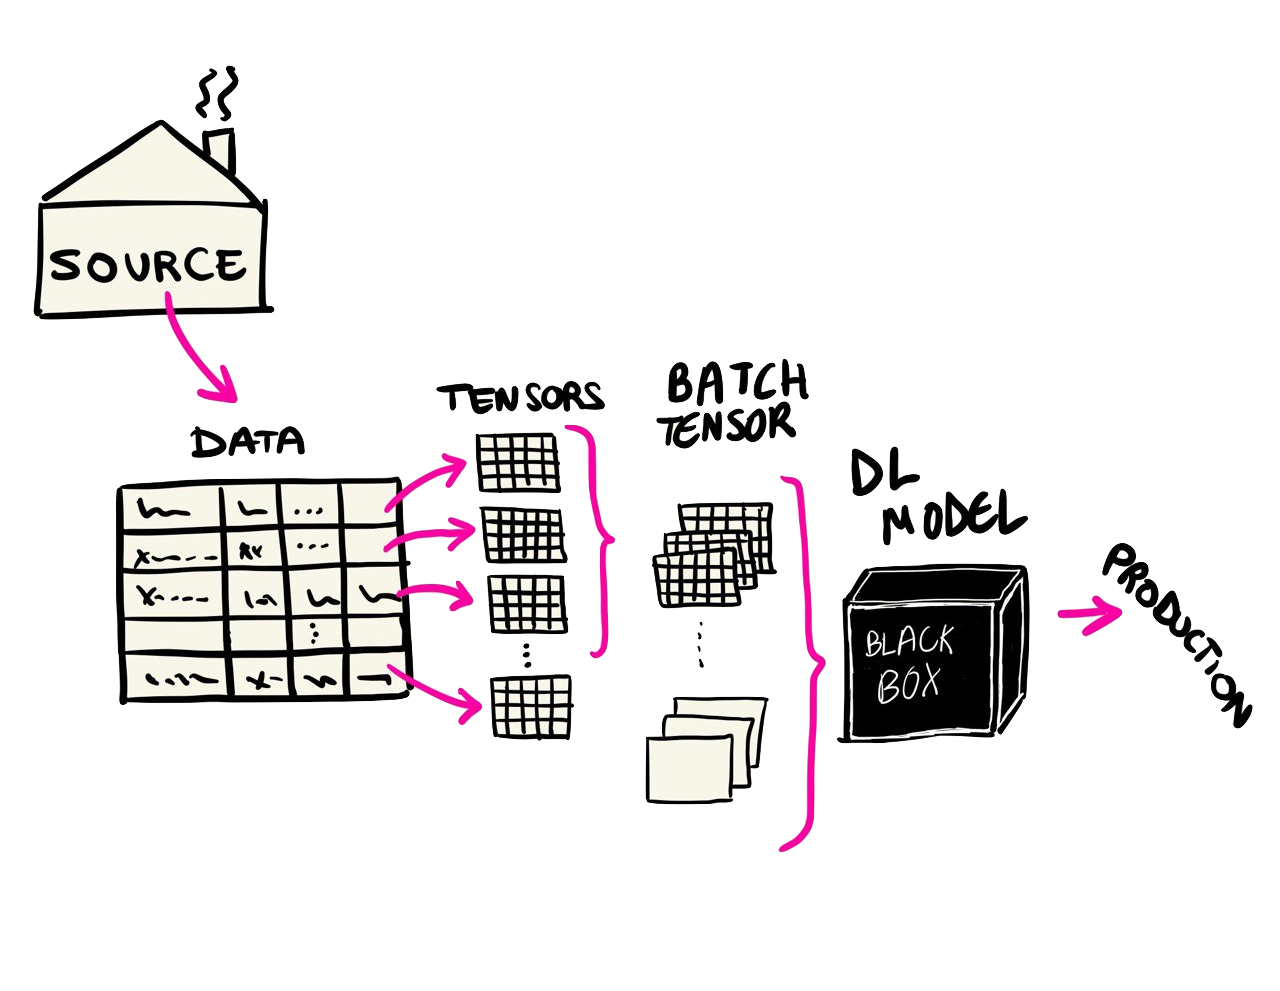 SOURCE
DATA
TENSORS
BATCH
TENSOR
DL
MODEL
BLACK
BOX
PRODUCTION